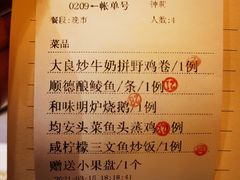 0209-帐单号
餐段:晚市 人数:4
菜品
大良炒牛奶拼野鸡卷/1例
顺德酿鲮鱼/条/1例
和味明炉烧鹅/1例
均安头菜鱼头蒸鸡/1例
咸柠檬三文鱼炒饭/1例
赠送小果盘/1个